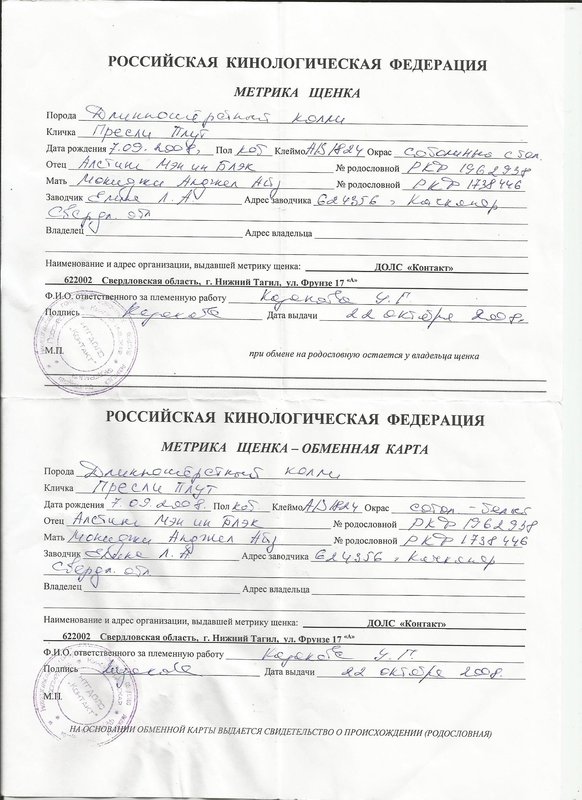 РОССИЙСКАЯ КИНОЛОГИЧЕСКАЯ ФЕДЕРАЦИЯ
МЕТРИКА ЩЕНКА
Порода Длинношёрстный колли
Кличка Пресли Плут
Дата рождения 7.09.2008, Пол коб Клеймо АВI824 Окрас
Отец Алстинг Мэн ин Блэк № родословной РКФ 1962938
Мать Анджел № родословной РКФ 1738446
Заводчик Л.А Адрес заводчика 624356, Качканар
Свердл. обл
Владелец Адрес владельца
Наименование и адрес организации, выдавшей метрику щенка: ДОЛС «Контакт»
622002 Свердловская область, г. Нижний Тагил, ул. Фрунзе 17 "А"
Ф.И.О. ответственного за племенную работу Казакова У. Г.
Подпись Казакова Дата выдачи 22 октября 2008г.
М.П. при обмене на родословную остается у владельца щенка
РОССИЙСКАЯ КИНОЛОГИЧЕСКАЯ ФЕДЕРАЦИЯ
МЕТРИКА ЩЕНКА – ОБМЕННАЯ КАРТА
Порода Длинношёрстный колли
Кличка Пресли Плут
Дата рождения 7.09.2008. Пол коб. Клеймо АВI824 Окрас собол - белый
Отец Алстинг Мэн ин Блэк № родословной РКФ 1962938
Мать Анджел № родословной РКФ 1738446
Заводчик Л.А Адрес заводчика 624356, Качканар
Свердл. обл
Владелец Адрес владельца
Наименование и адрес организации, выдавшей метрику щенка: ДОЛС «Контакт»
622002 Свердловская область, г. Нижний Тагил, ул. Фрунзе 17 "А"
Ф.И.О. ответственного за племенную работу Казакова У. Г.
Подпись Казакова Дата выдачи 22 октября 2008.
М.П.
НА ОСНОВАНИИ ОБМЕННОЙ КАРТЫ ВЫДАЕТСЯ СВИДЕТЕЛЬСТВО О ПРОИСХОЖДЕНИИ (РОДОСЛОВНАЯ)